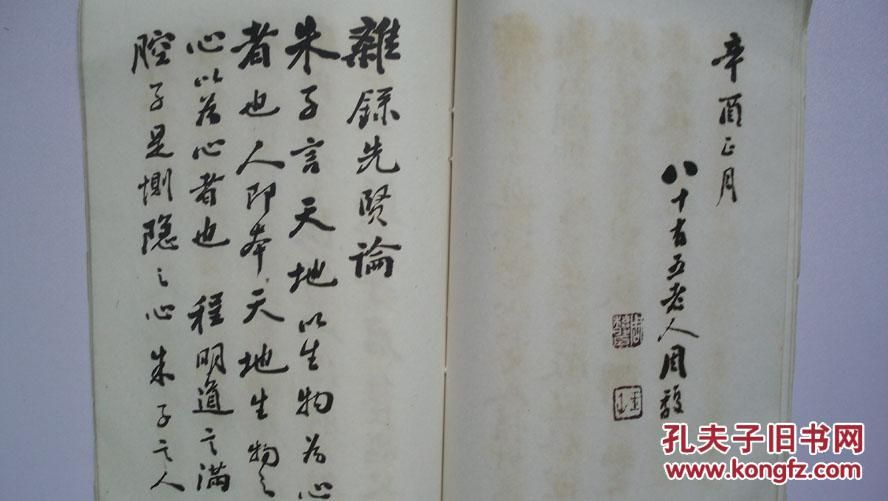 辛酉正月
八十有五老人周馥
雜錄先贤論
朱子言天地以生物為心
者也人即本天地生物之
心以為心者也 程明道言满
腔子是惻隐之心朱子言人
孔夫子旧书网
www.kongfz.com